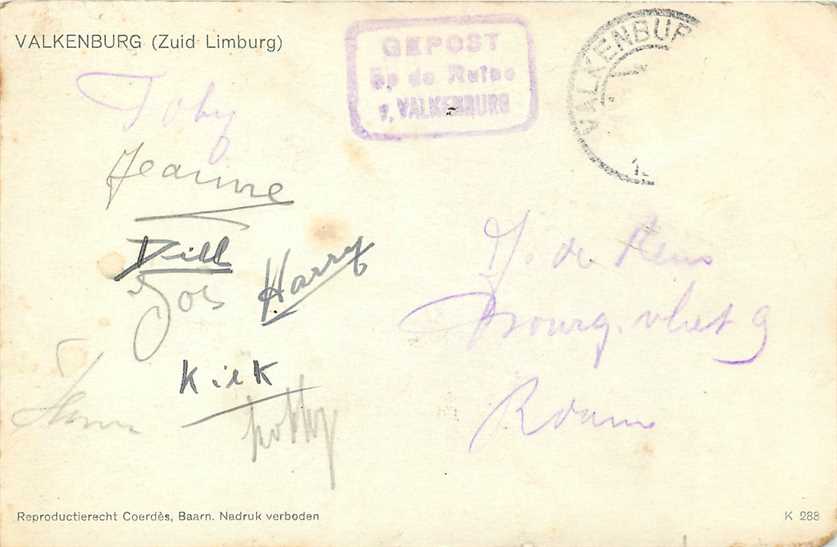 VALKENBURG (Zuid Limburg)
GEPOST
Op de Ruïne
v. VALKENBURG
VALKENBUR
Toby
Jeanne
Dill
Jos
Harry
Kick
J. de
vliet 9
Rdam
Reproductierecht Coerdès, Baarn. Nadruk verboden
K 288